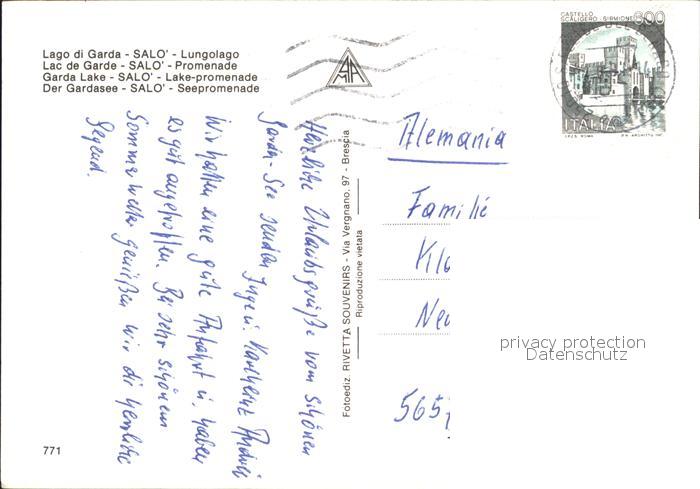 Lago di Garda - SALO' - Lungolago
Lac de Garde - SALO' - Promenade
Garda Lake - SALO' - Lake-promenade
Der Gardasee - SALO' - Seepromenade
CASTELLO
SCALIGERO - SIRMIONE 800
ITALIA
I.P.Z.S. ROMA
Herzliche Urlaubsgrüße vom schönen
Garda-See senden Inge u. Karlheinz
Wir hatten eine gute Anfahrt u. haben
es gut angetroffen. Bei sehr schönem
Sommerwetter genießen wir die herrliche
Gegend.
Fotoediz. RIVETTA SOUVENIRS - Via Vergnano, 97 - Brescia
Riproduzione vietata
Alemania
Familie
Klo
Neu
565
privacy protection
Datenschutz
771